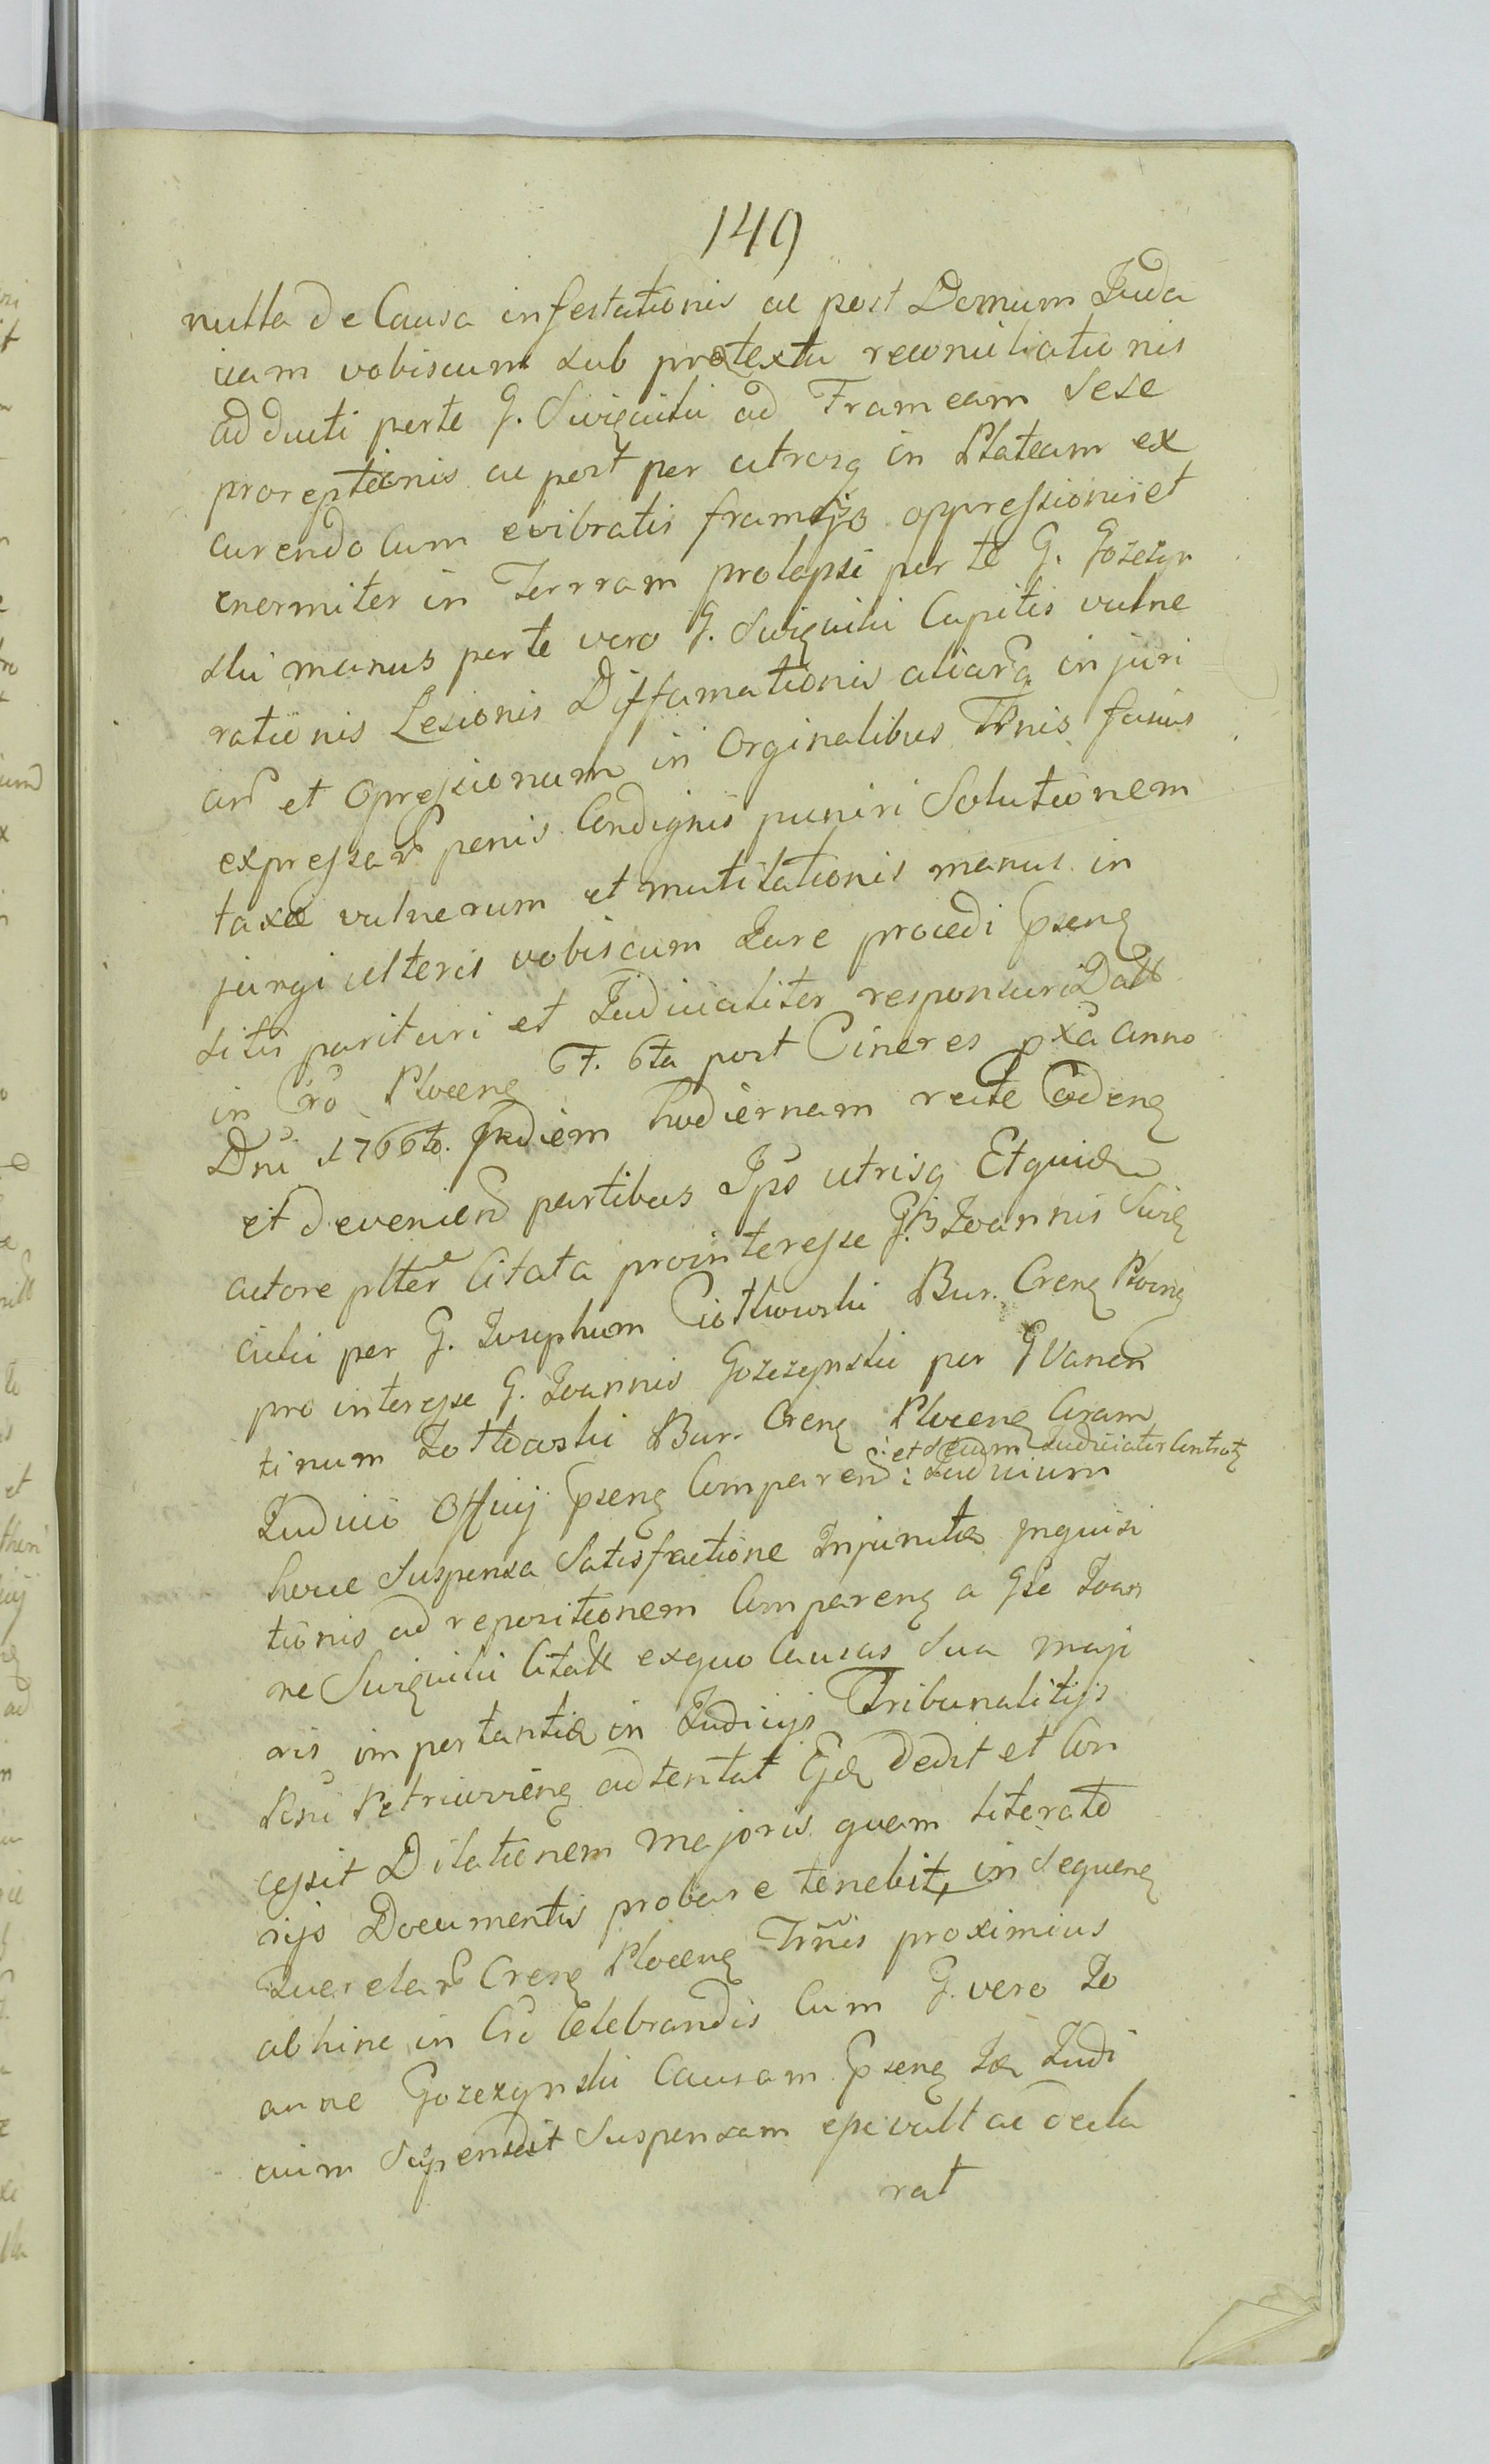 149
nulla de Causa infestationis ac post Domum Juda
icam vobiscum sub prætextu reconciliationis
adducti per te G. Swięcicki ad Frameam sese
proreptionis ac post per utrosq in Plateam ex
currendo Cum evibratis frameis oppressionis et
enormiter in Terrram prolapsi per te G. Gozczyn
ski manus per te vero G. Swięcicki Capitis vulne
rationis Lesionis Diffamationis aliarq injuri
ar et Opressionum in Orginalibus Trnis fusius
expressar penis Condignis puniri Solutionem
taxæ vulnerum et mutilationis manus in
jungi ulteris vobiscum Jure procedi psens
sitis parituri et Judicialiter responsuri Datt
in Cro Plocens F. 6ta post Cineres pxa anno
Dni 1766to. Indiem hodiernam recte Cadens
et devenien partibus Ips utrisq Et quidem
actore plter Citata pro interesse G. Joannis Swię
cicki per G. Josephum Ciotkowski Bur. Crens Plocens
pro interesse G. Joannis Gozczynski per G Valen
tinum Zołtowski Bur. Crens Plocens Coram
: et secum Judicialiter Contrōts
Judicio Officij psens Comparen : Judicium
hocce Suspensa Satisfactione Injunctæ Inquisi
tionis ad repositionem Comparens a Gso Joan
ne Swięcicki Citatt ex quo Causas sua majo
ris importantiæ in Judicijs Tribunalitijs
Rni Petricoviens adtentat Eidem dedit et Con
cessit Dilationem majoris quam literato
rijs Documentis probare tenebit, in sequens
Querelar Crens Plocens Trnis proximius
abhinc in Cro Celebrandis Cum G. vero Jo
anne Gozczynski Causam psens Idem Judi
cium Supendit Suspensam esse vult ac decla
rat